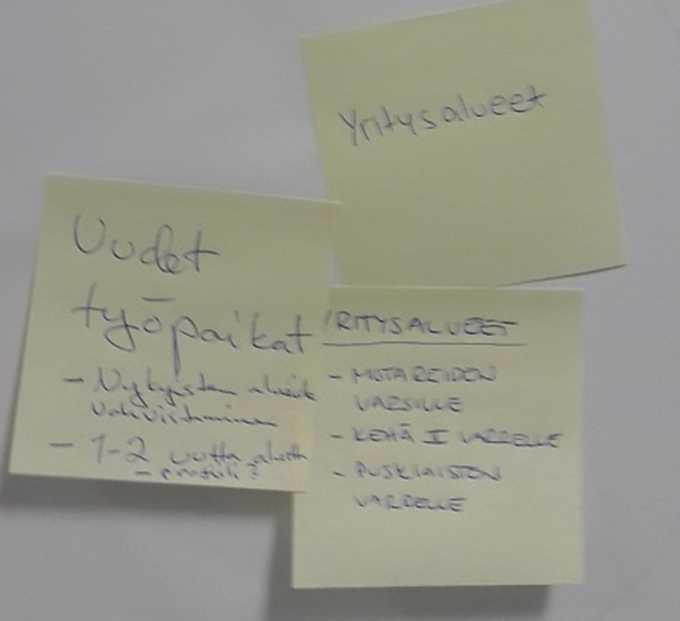 Yritysalueet
Uudet
työpaikat
- Nykyisten alueiden
vahvistaminen
- 1-2 uutta aluetta
- profiili?
YRITYSALUEET
- MOTAREIDEN
VARSILLE
- KEHÄ I VARRELLE
- PUSKIAISTEN
VARRELLE